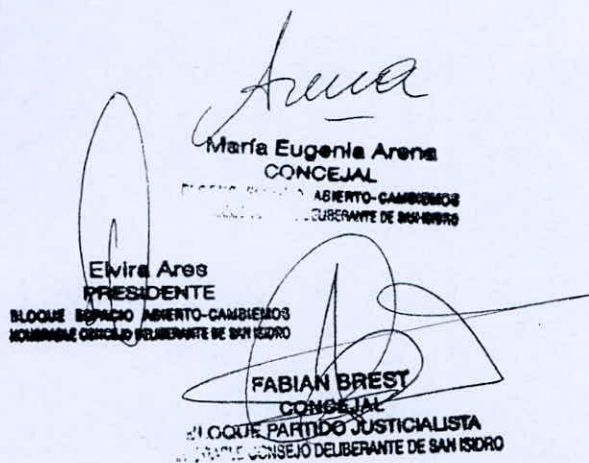 Arena
María Eugenia Arena
CONCEJAL
ABIERTO-CAMBIEMOS
DELIBERANTE DE SAN ISIDRO
Elvira Ares
PRESIDENTE
BLOQUE ESPACIO ABIERTO-CAMBIEMOS
HONORABLE CONCEJO DELIBERANTE DE SAN ISIDRO
FABIAN BREST
CONCEJAL
BLOQUE PARTIDO JUSTICIALISTA
CONSEJO DELIBERANTE DE SAN ISIDRO